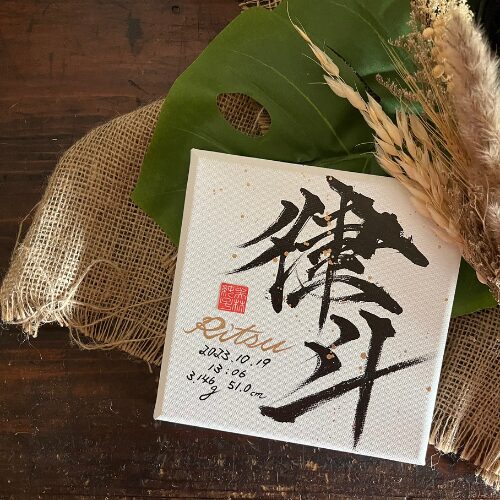 律斗
Ritsu
2023.10.19
13:06
3,146g 51.0cm